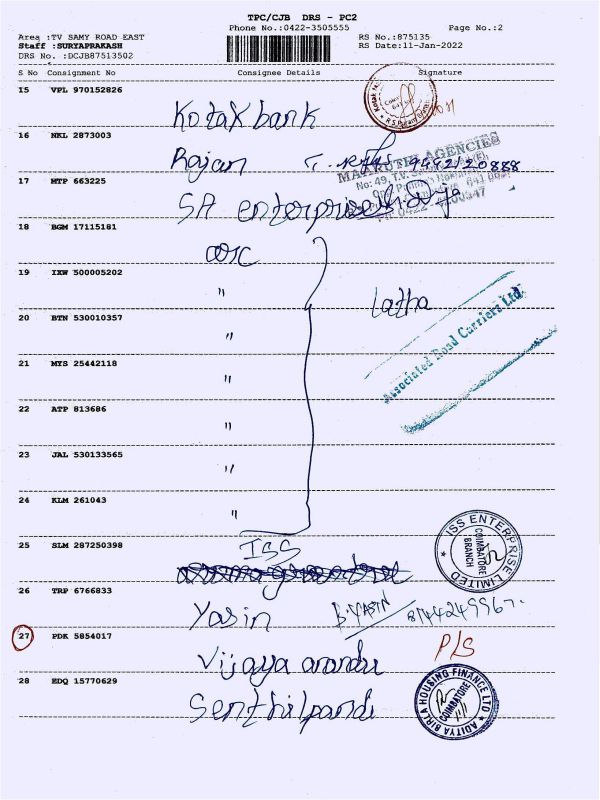 TPC/CJB DRS - PC2
Phone No.:0422-3505555 Page No.:2
Area :TV SAMY ROAD EAST RS No.:875135
Staff :SURYAPRAKASH RS Date:11-Jan-2022
DRS No. :DCJB87513502
S No Consignment No Consignee Details Signature
15 VPL 970152826
Kotak bank
16 NKL 2873003
Rajan 9442120888
MARUTHI AGENCIES
17 MTP 663225
SA enterprise
18 BGM 17115181
arc
19 IXW 500005202
"
Latha
Associated Road Carriers Ltd.
20 BTN 530010357
"
21 MYS 25442118
"
22 ATP 813686
"
23 JAL 530133565
"
24 KLM 261043
"
25 SLM 287250398
ISS
ISS ENTERPRISE LIMITED
COIMBATORE
BRANCH
26 TRP 6766833
Yasin B.YASIN
27 PDK 5854017
Vijaya anandu P/S
28 EDQ 15770629
Senthilpandi
ADITYA BIRLA HOUSING FINANCE LTD
COIMBATORE